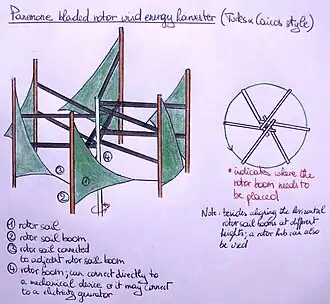 Panemone bladed rotor wind energy harvester (Turks & Caicos style)
③
④
②
①
① rotor sail
② rotor sail boom
③ rotor sail connected
to adjacent rotor sail boom
④ rotor boom; can connect directly to
a mechanical device or it may connect
to a electricity generator
* indicates where the
rotor boom needs to
be placed
Note: besides aligning the horizontal
rotor sail booms at different
heights; a rotor hub can also
be used